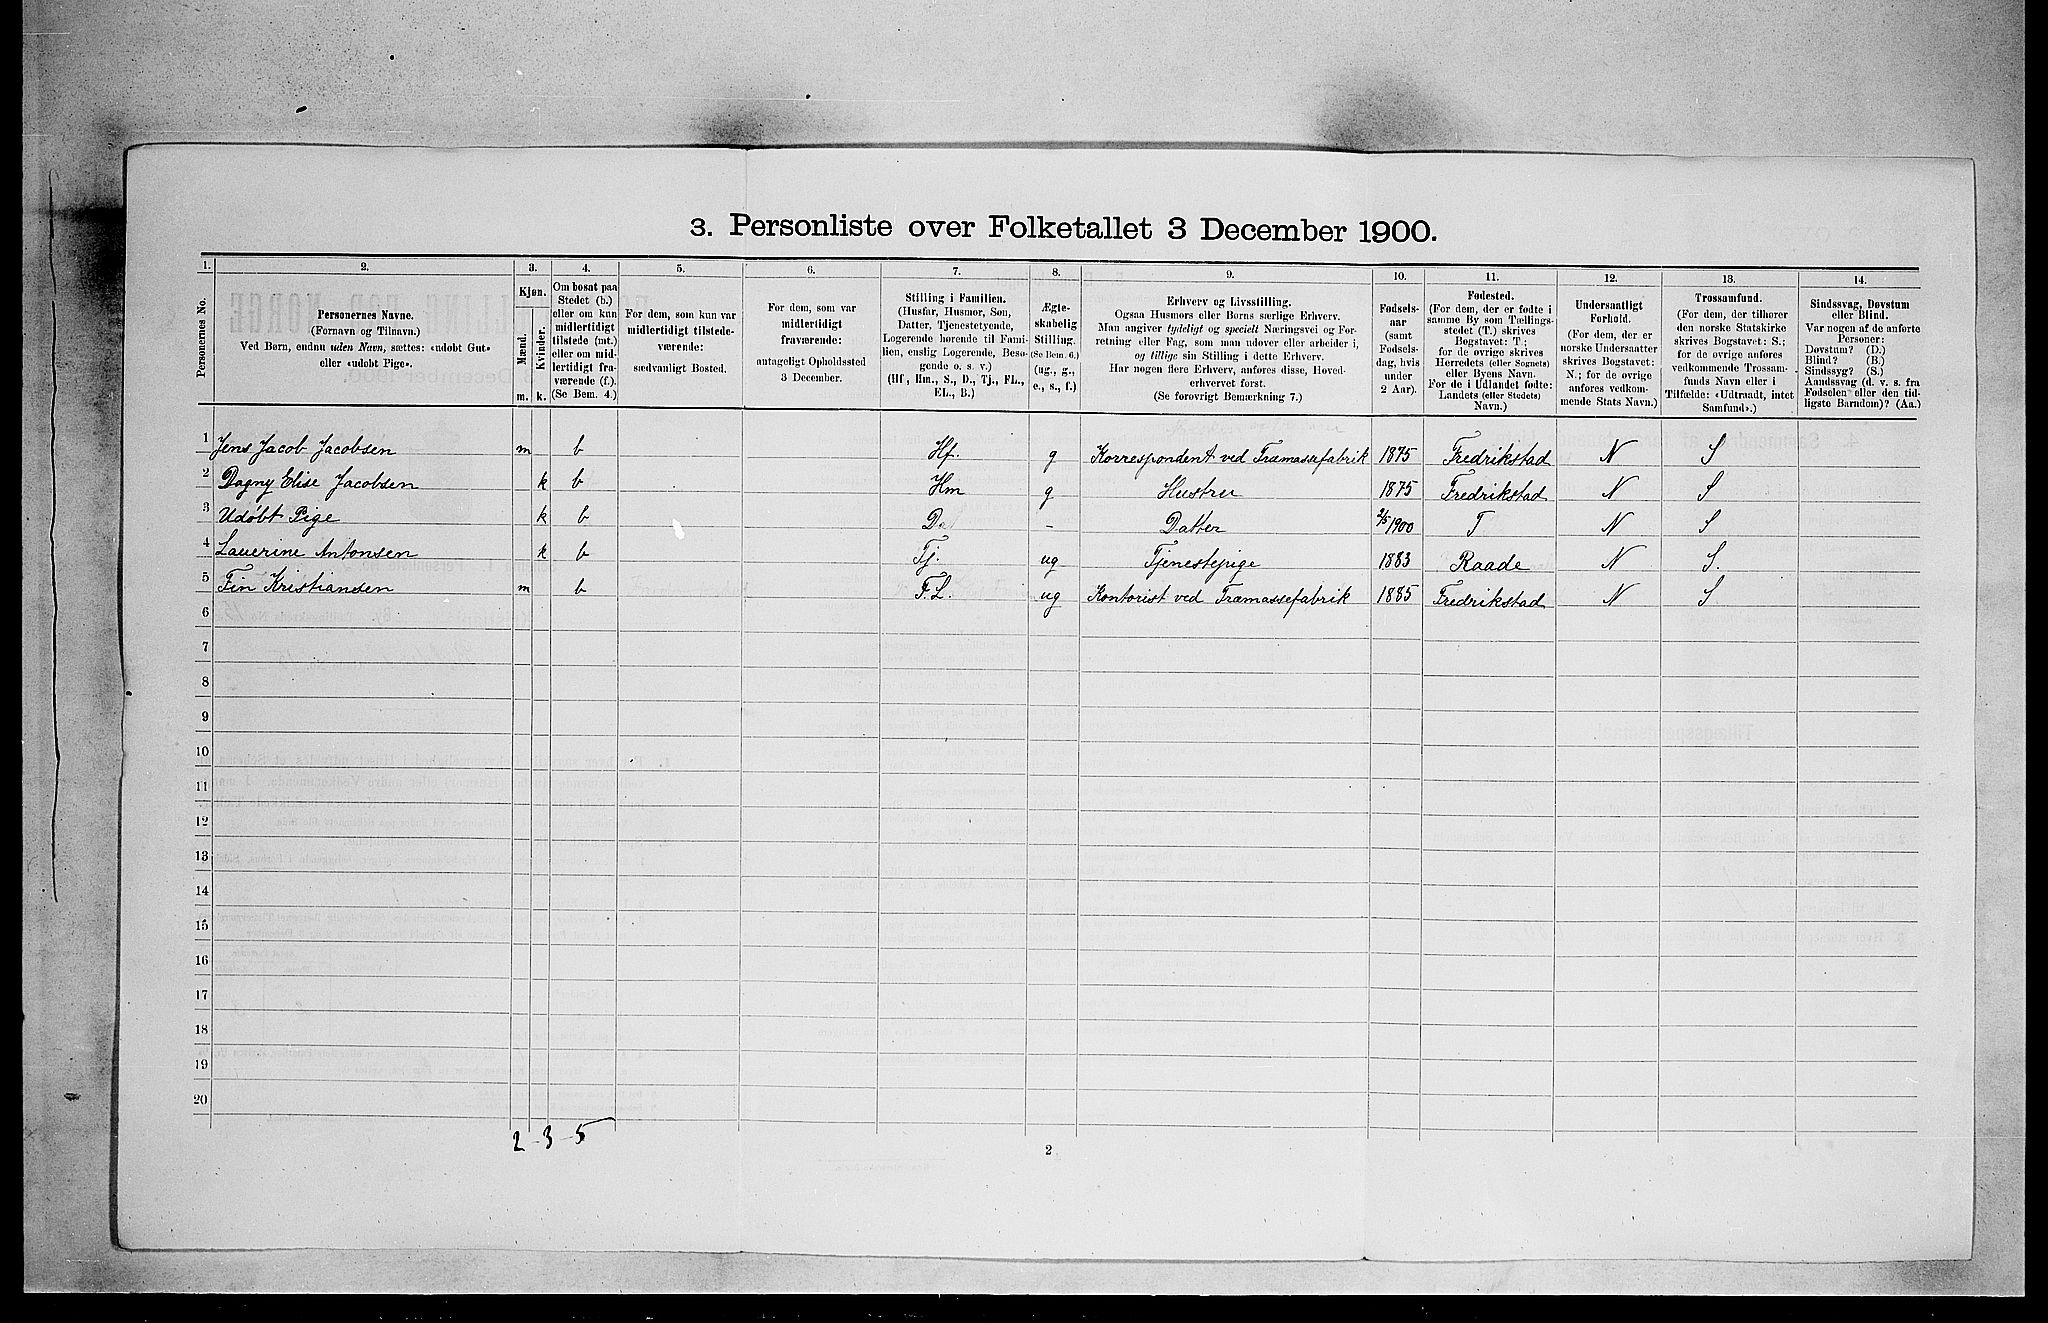 3. Personliste over Folketallet 3 December 1900.
1. 2. 3. 4. 5. 6. 7. 8. 9. 10. 11. 12. 13. 14.
Personernes No.
Personernes Navne.
(Fornavn og Tilnavn.)
Ved Børn, endnu uden Navn, sættes: «udøbt Gut»
eller «udøbt Pige».
Kjøn.
Mænd.
Kvinder.
m. k.
Om bosat paa
Stedet (b.)
eller om kun
midlertidigt
tilstede (mt.)
eller om mid-
lertidigt fra-
værende (f.)
(Se Bem. 4.)
For dem, som kun var
midlertidigt tilstede-
værende:
sædvanligt Bosted.
For dem, som var
midlertidigt
fraværende:
antageligt Opholdssted
3 December.
Stilling i Familien.
(Husfar, Husmor, Søn,
Datter, Tjenestetyende,
Logerende hørende til Fami-
lien, enslig Logerende, Besø-
gende o. s. v.)
(Hf, Hm., S., D., Tj., FL.,
EL., B.)
Ægte-
skabelig
Stilling.
(Se Bem. 6.)
(ug., g.,
e., s., f.)
Erhverv og Livsstilling.
Ogsaa Husmors eller Børns særlige Erhverv.
Man angiver tydeligt og specielt Næringsvei og For-
retning eller Fag, som man udover eller arbeider i,
og tillige sin Stilling i dette Erhverv.
Har nogen flere Erhverv, anføres disse, Hoved-
erhvervet først.
(Se forøvrigt Bemærkning 7.)
Fødsels-
aar
(samt
Fødsels-
dag, hvis
under
2 Aar).
Fødested.
(For dem, der er fødte i
samme By som Tællings-
stedet (T.) skrives
Bogstavet: T;
for de øvrige skrives
Herredets (eller Sognets)
eller Byens Navn.
For de i Udlandet fødte:
Landets (eller Stedets)
Navn.)
Undersaatligt
Forhold.
(For dem, der er
norske Undersaatter
skrives Bogstavet:
N.; for de øvrige
anføres vedkom-
mende Stats Navn.)
Trossamfund.
(For dem, der tilhører
den norske Statskirke
skrives Bogstavet: S.;
for de øvrige anføres
vedkommende Trossam-
funds Navn eller i
Tilfælde: «Udtraadt, intet
Samfund».)
Sindssvag, Døvstum
eller Blind.
Var nogen af de anførte
Personer:
Døvstum? (D.)
Blind? (B.)
Sindssyg? (S.)
Aandssvag (d. v. s. fra
Fødselen eller den tid-
ligste Barndom)? (Aa.)
1 Jens Jacob Jacobsen m b Hf. g Korrespondent ved Træmassefabrik 1875 Fredrikstad N S
2 Dagny Elise Jacobsen k b Hm g Hustru 1875 Fredrikstad N S
3 Udøbt Pige k b D - Datter 2/5 1900 T N S
4 Lauerine Antonsen k b Tj. ug Tjenestepige 1883 Raade N S.
5 Fin Kristiansen m b F.L. ug Kontorist ved Træmassefabrik 1885 Fredrikstad N S
6
7
8
9
10
11
12
13
14
15
16
17
18
19
20
2 - 3 - 5
2